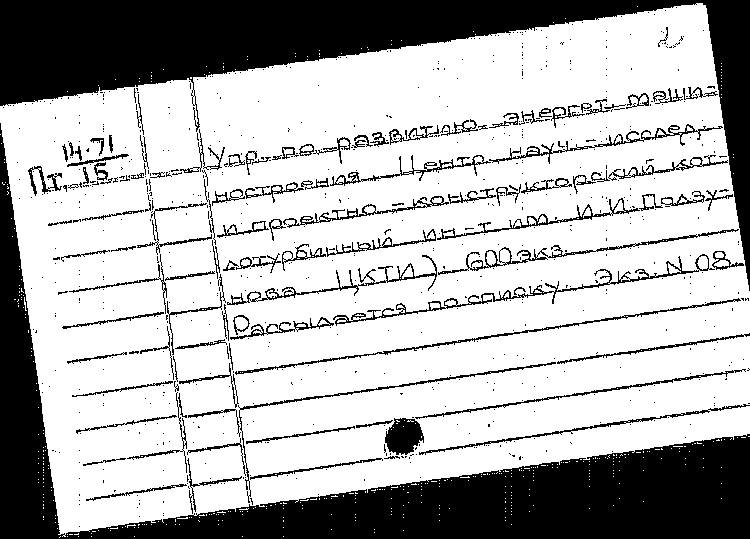 2
14.71
Пт. 15
Упр. по развитию энергет. маши-
ностроения. Центр. науч.-исслед.
и проектно-конструкторский кот-
лотурбинный ин-т им. И.И. Ползу-
нова ЦКТИ). 600 экз.
Рассылается по списку. Экз. N 08.